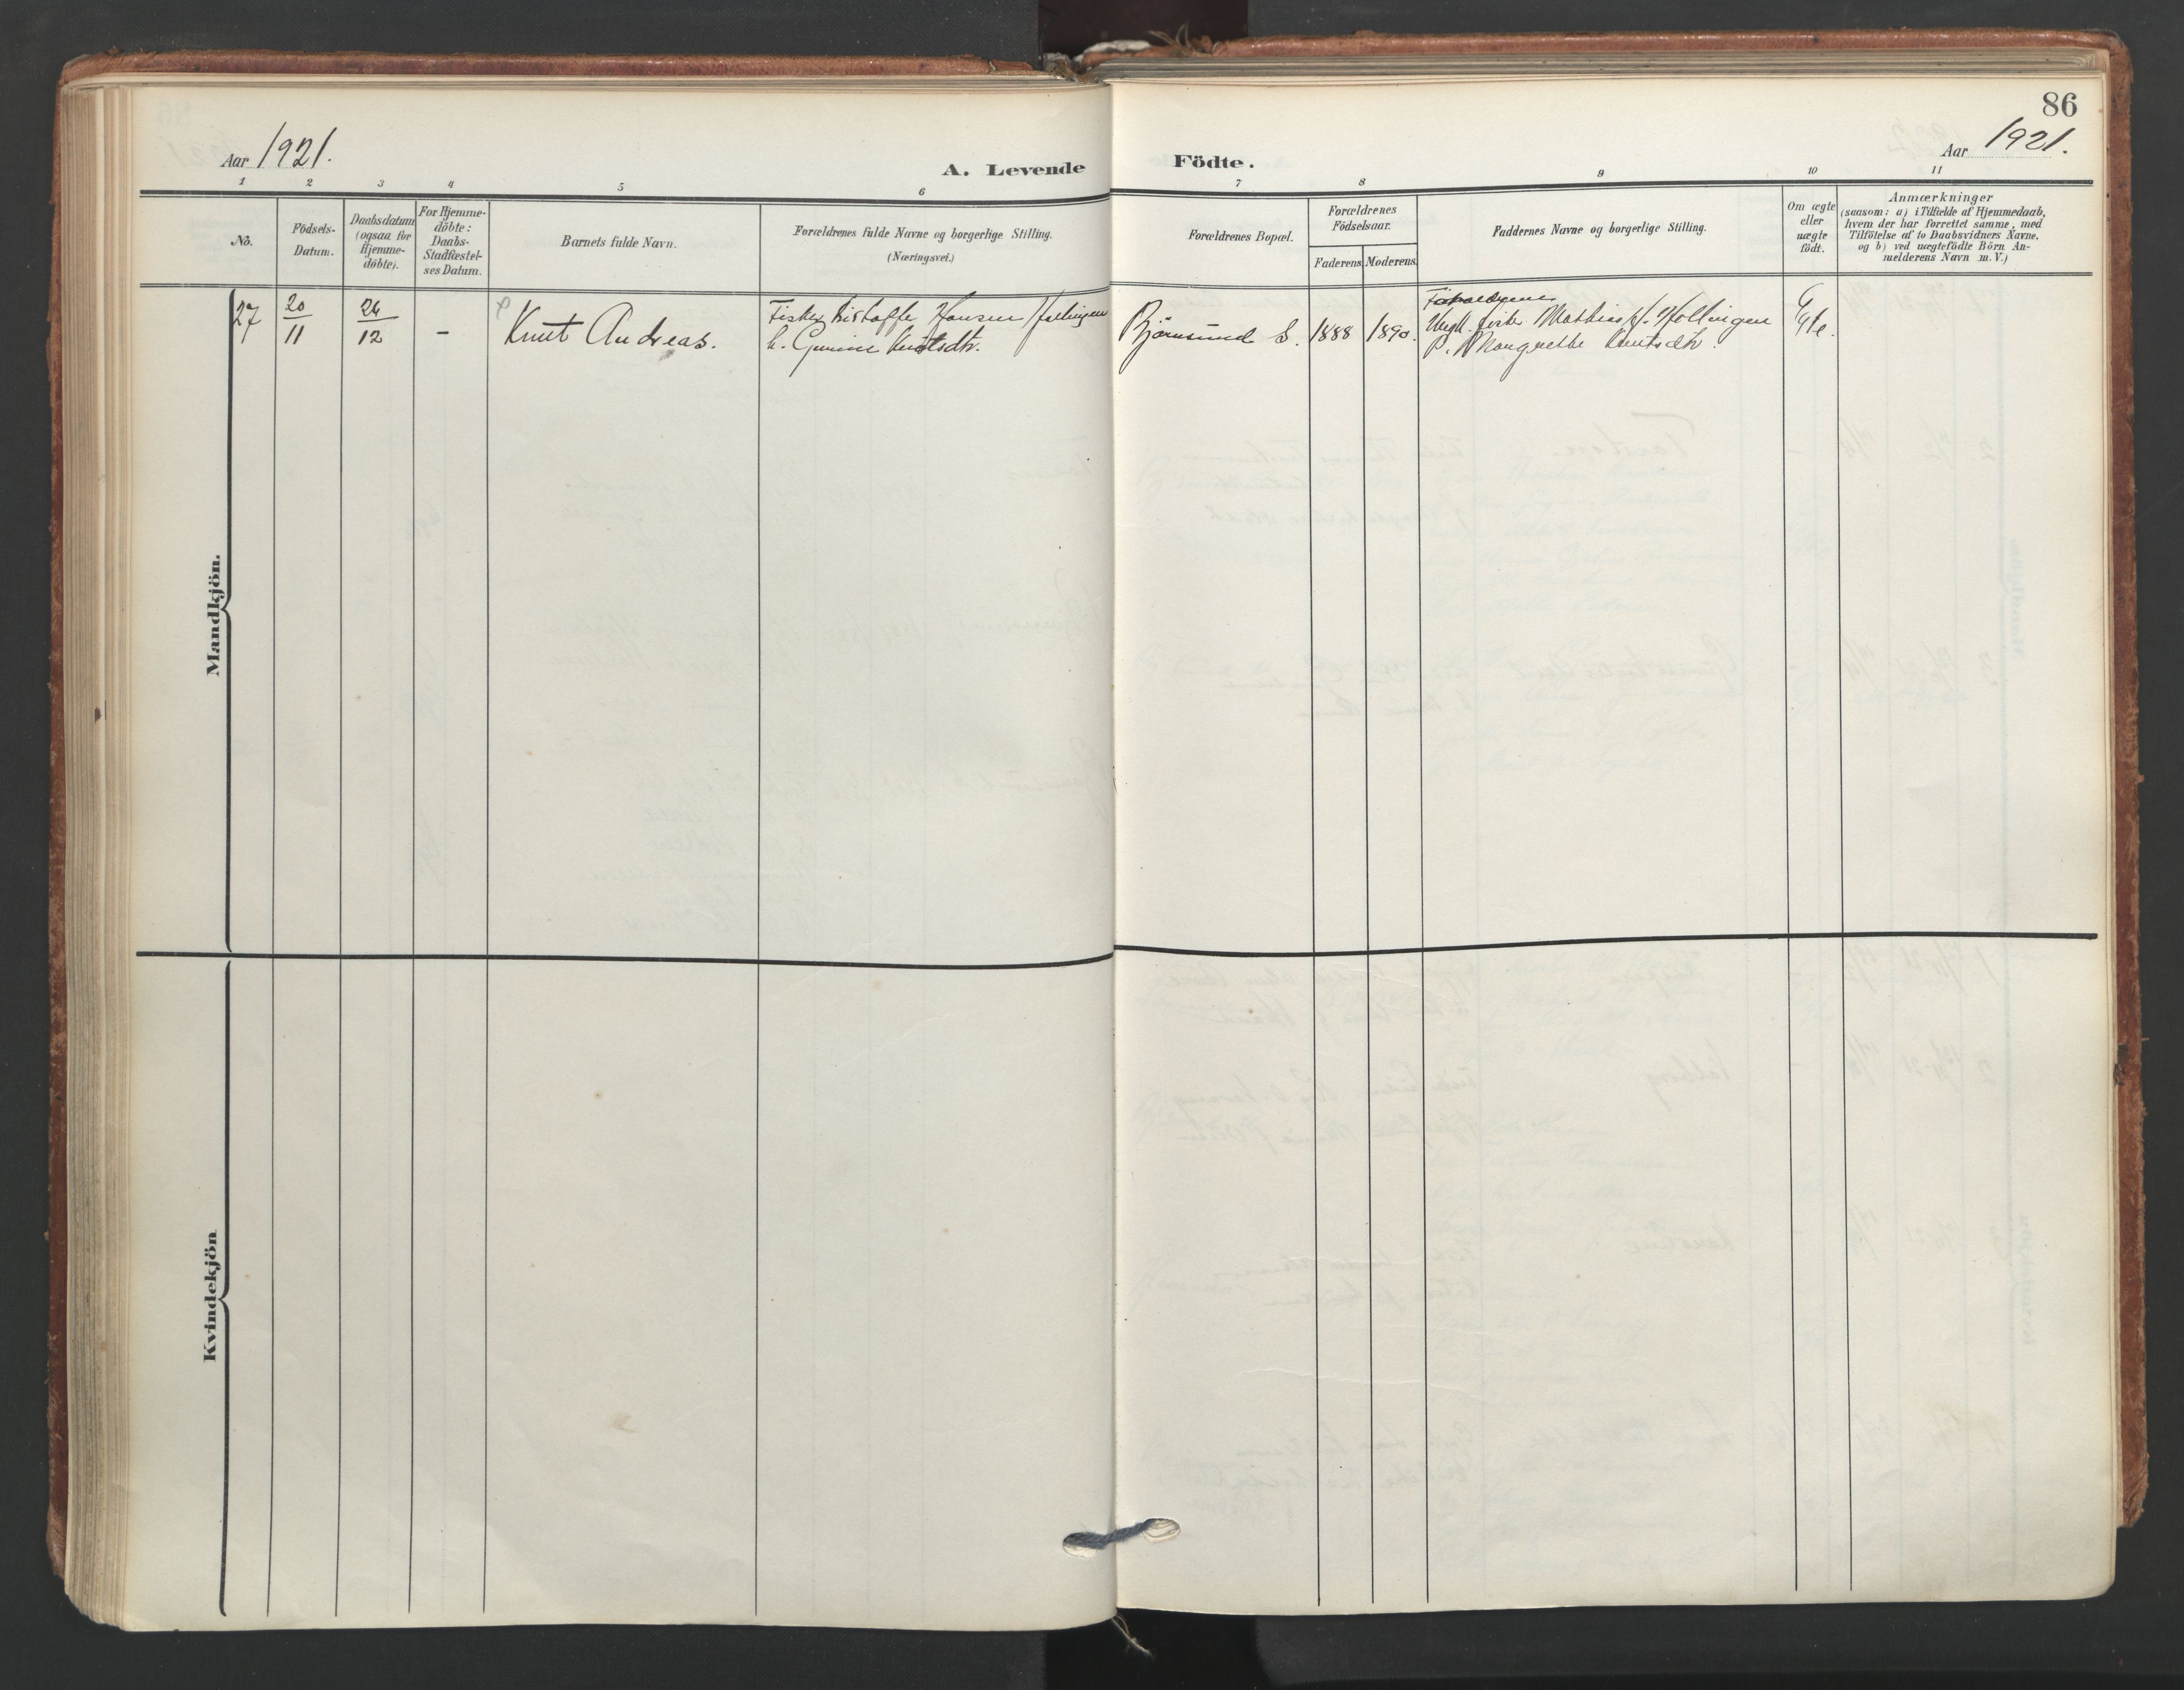 86
Aar 1921.
Aar 1921.
A. Levende Födte.
1 2 3 4 5 6 7 8 9 10 11
No.
Födsels-
Datum.
Daabsdatum
(ogsaa for
Hjemme-
döbte).
For Hjemme-
döbte:
Daabs-
Stadfæstel-
ses Datum.
Barnets fulde Navn.
Forældrenes fulde Navne og borgerlige Stilling.
(Næringsvei.)
Forældrenes Bopæl.
Forældrenes
Födselsaar.
Faderens Moderens
Faddernes Navne og borgerlige Stilling.
Om ægte
eller
uægte
födt.
Anmærkninger
(saasom: a) i Tilfælde af Hjemmedaab,
hvem der har forrettet samme, med
Tilföielse af to Daabsvidners Navne.
og b) ved uægtefödte Börn An-
melderens Navn m. V.)
Mandkjön.
27
20
11
26
12
-
Knut Andreas.
Fisker Kristoffer Hansen Hollingen
h. Gurine Knutsdtr.
Björnsund S.
1888
1890.
Forældrene
Ungk. fisker Mathias Hollingen
P. Margrethe Knutsdtr.
Egte.
Kvindekjön